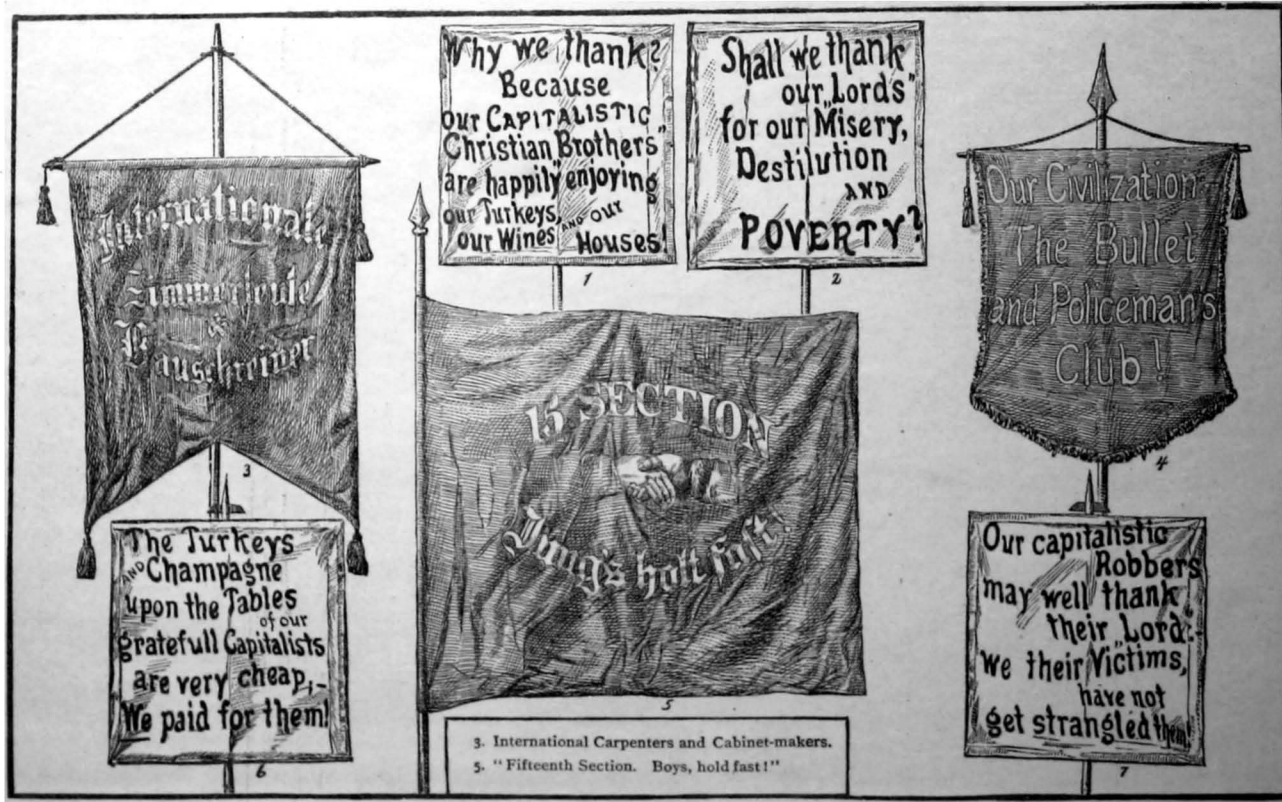 Why we thank?
Because
our CAPITALISTIC
"Christian Brothers"
are happily enjoying
our Turkeys,
our Wines AND our
Houses!
1
Shall we thank
our „Lords"
for our Misery,
Destilution
AND
POVERTY?
2
Internationale
Zimmerleute
&
Bauschreiner
3
Our Civilization
The Bullet
and Policeman's
Club!
4
15 SECTION
Jung's holt fast!
5
The Turkeys
AND Champagne
upon the Tables
of our
gratefull Capitalists
are very cheap,-
We paid for them!
6
Our capitalistic
Robbers
may well thank
their „Lord":-
we their Victims,
have not
get strangled them!
7
3. International Carpenters and Cabinet-makers.
5. "Fifteenth Section. Boys, hold fast!"